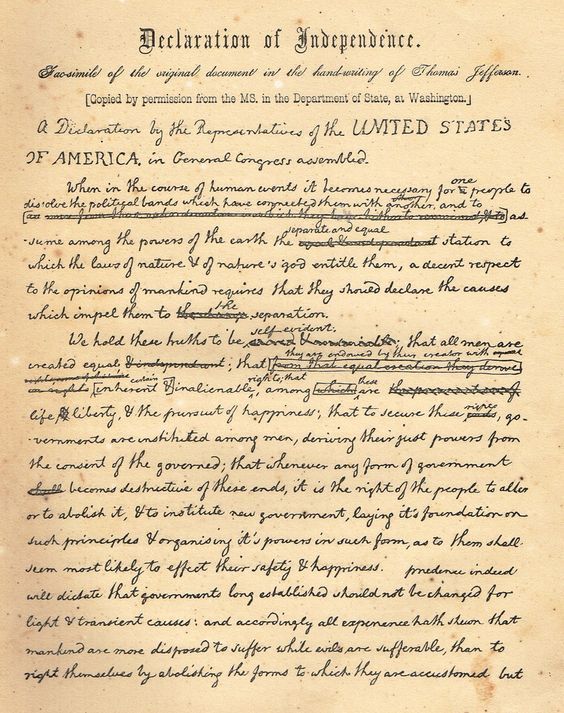 Declaration of Independence.
Fac-simile of the original document in the hand-writing of Thomas Jefferson.
[Copied by permission from the MS. in the Department of State, at Washington.]
A Declaration by the Representatives of the UNITED STATES
OF AMERICA, in General Congress assembled.
When in the course of human events it becomes necessary for one people to
dissolve the political bands which have connected them with another, and to
as-
separate and equal
sume among the powers of the earth the station to
which the laws of nature & of nature's god entitle them, a decent respect
to the opinions of mankind requires that they should declare the causes
the
which impel them to the change separation.
self evident.
We hold these truths to be, sacred & undeniable; that all men are
they are endowed by their creator with
created equal & independent; that [from that equal creation they derive
certain rights; that these
[inherent & inalienable, among [which] are
life & liberty, & the pursuit of happiness; that to secure these rights, go-
vernments are instituted among men, deriving their just powers from
the consent of the governed; that whenever any form of government
shall becomes destructive of these ends, it is the right of the people to alter
or to abolish it, & to institute new government, laying it's foundation on
such principles & organising it's powers in such form, as to them shall
seem most likely to effect their safety & happiness. prudence indeed
will dictate that governments long established should not be changed for
light & transient causes: and accordingly all experience hath shewn that
mankind are more disposed to suffer while evils are sufferable, than to
right themselves by abolishing the forms to which they are accustomed but